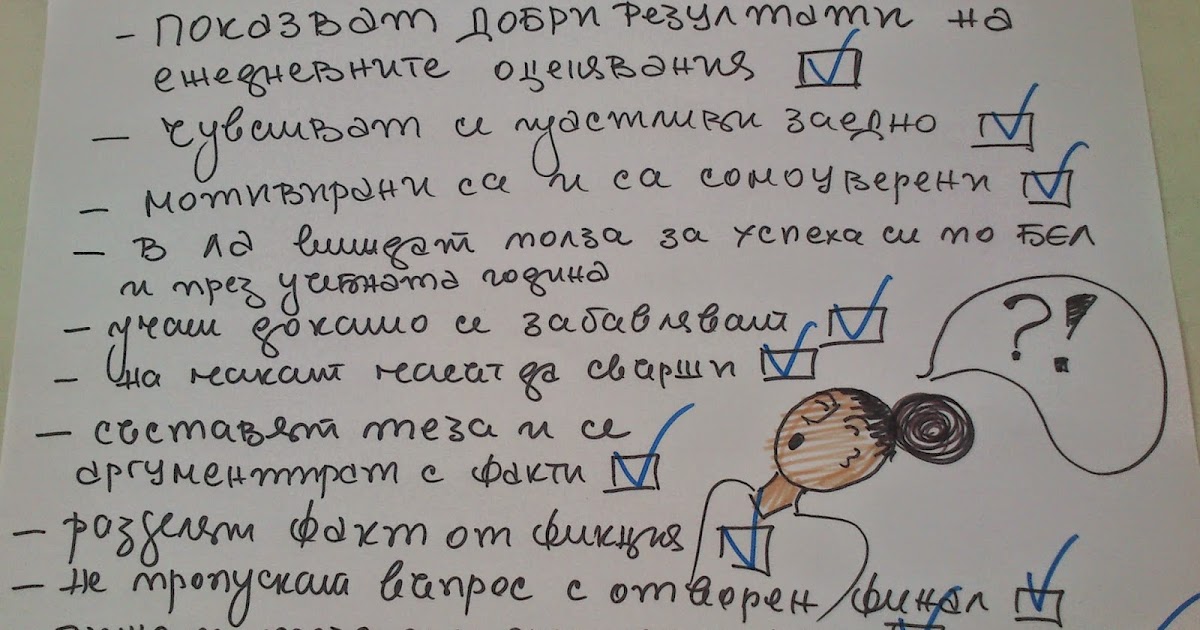 - показват добри резултати на
ежедневните оценявания
- чувстват се щастливи заедно
- мотивирани са и са самоуверени
- в ЛА виждат полза за успеха си по БЕЛ
и през учебната година
- учат докато се забавляват
- на искат часът да свърши
- съставят теза и се
аргументират с факти
- разделят факт от фикция
- не пропускат въпрос с отворен финал
?!